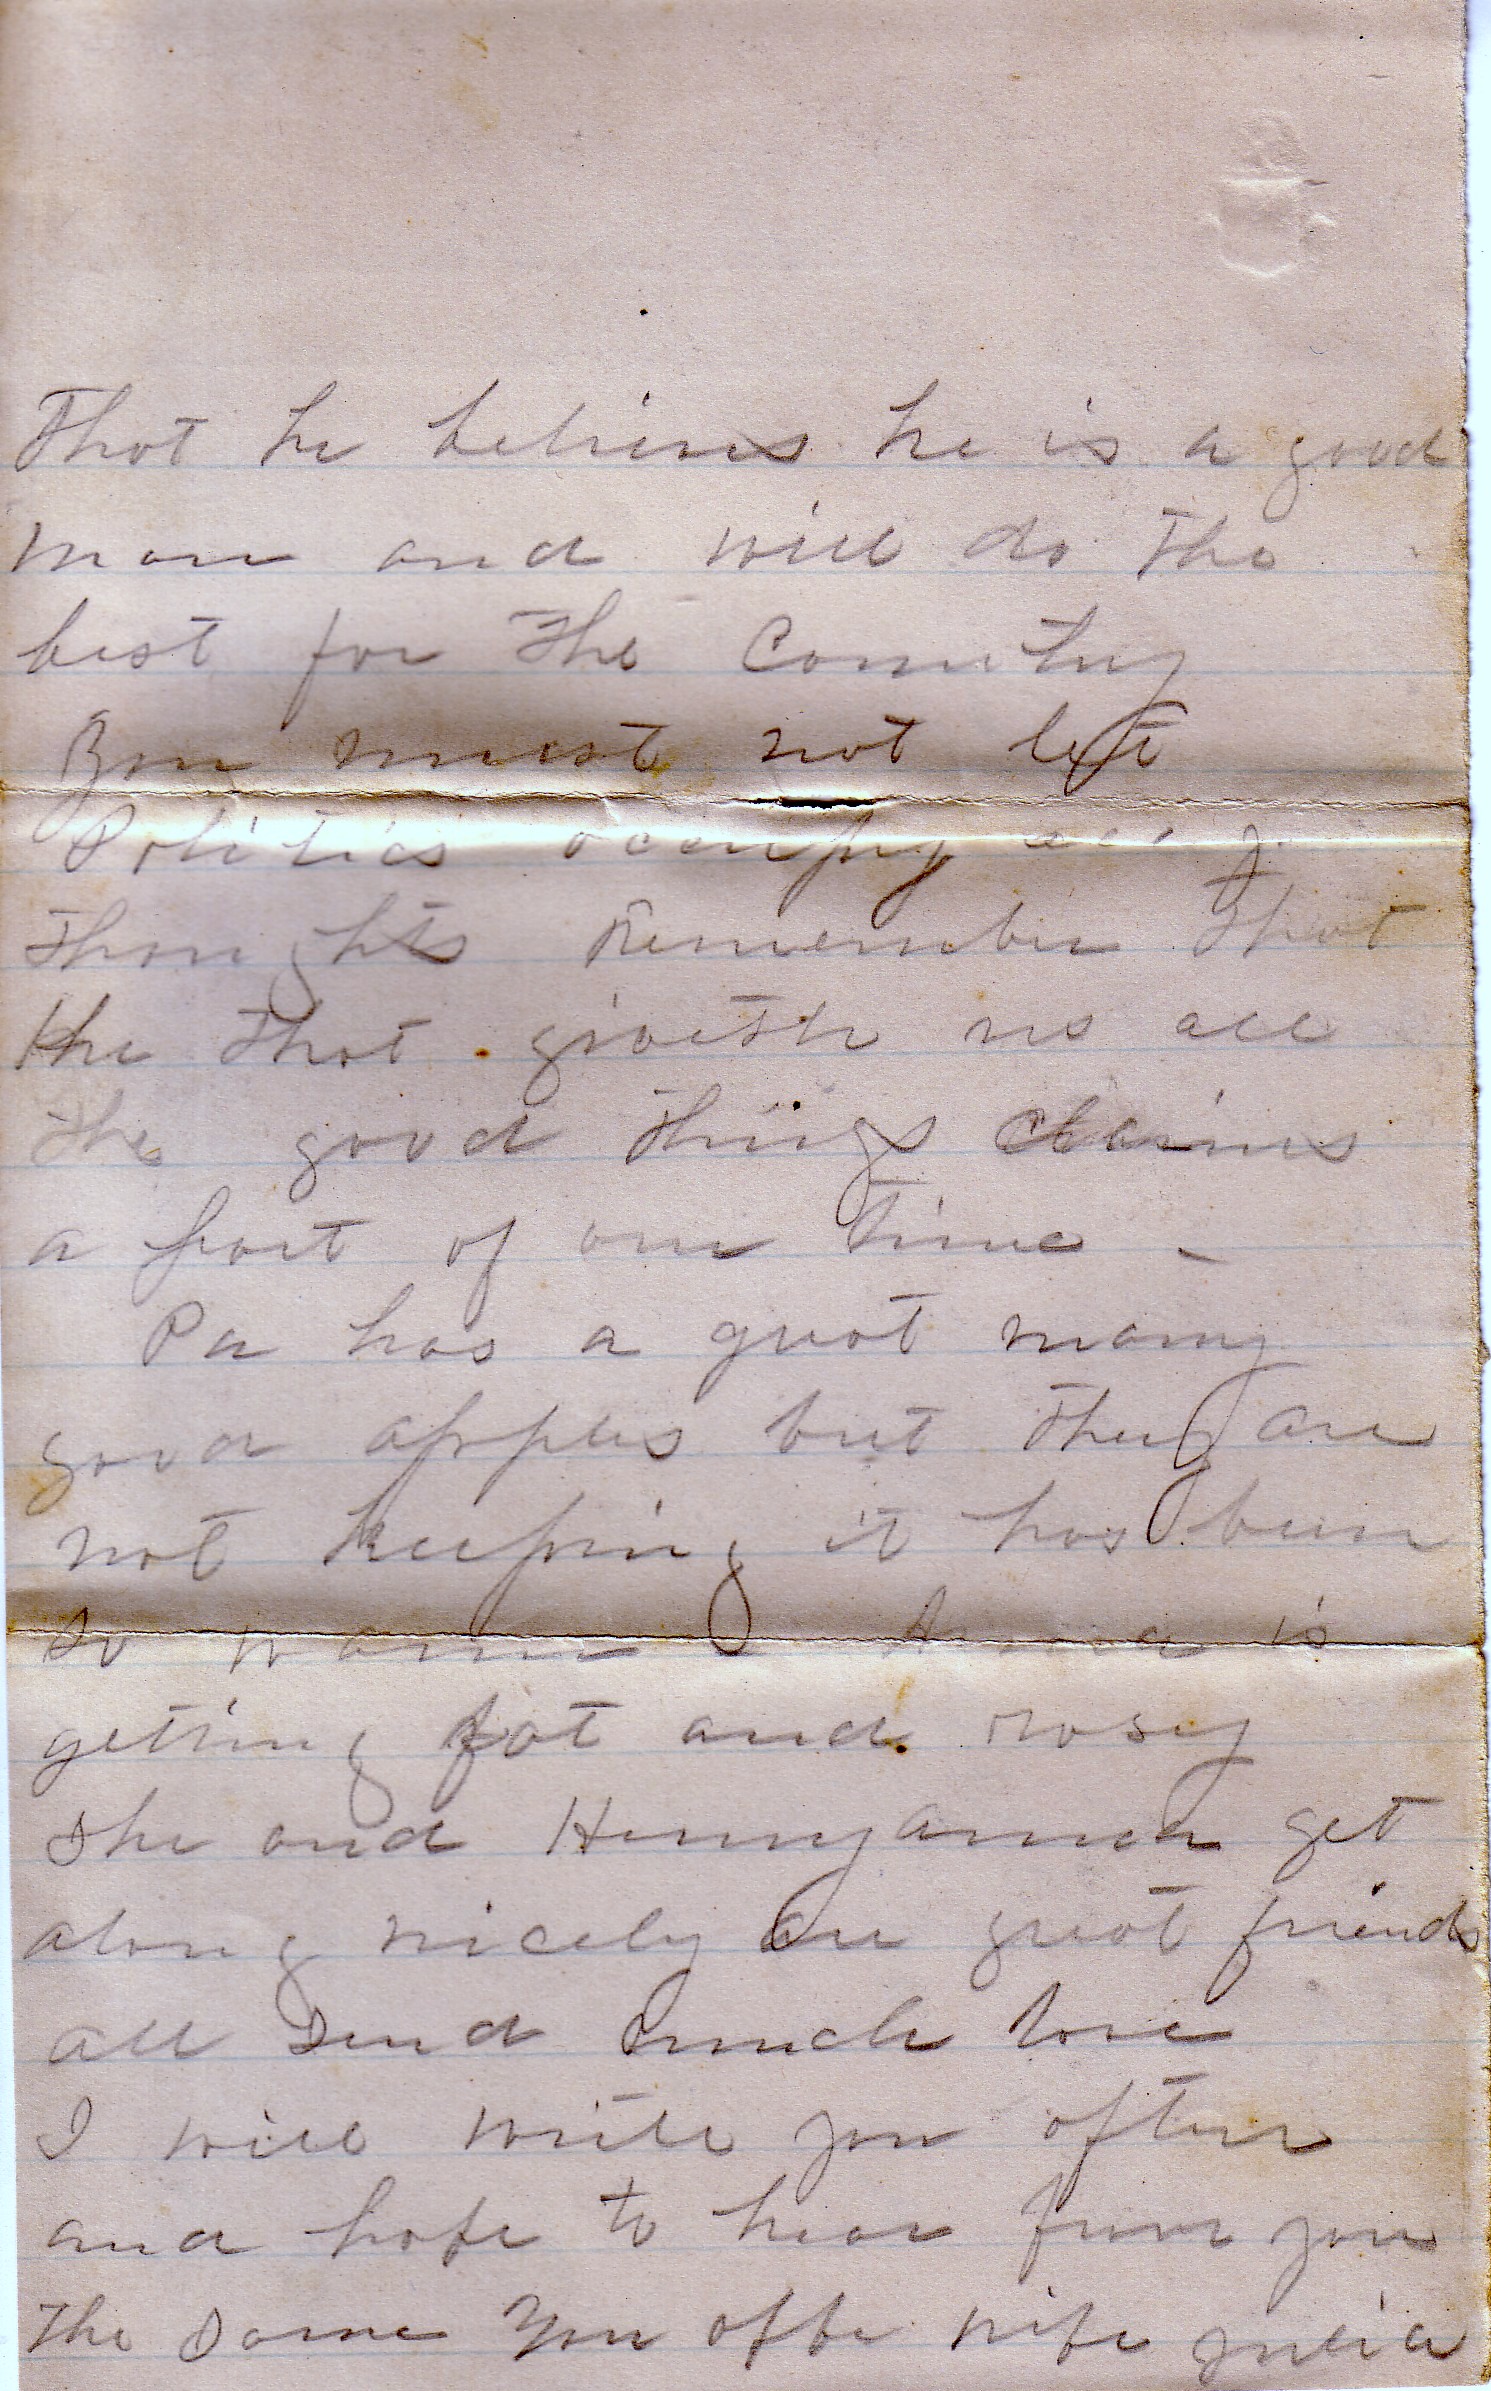 That he believes he is a good
man and will do the
best for the Country
You must not let
Politics occupy all
thoughts Remember that
He that giveth us all
the good things claims
a part of our time -
Pa has a great many
good apples but they are
not keeping it has been
so warm Anna is
getting fat and rosy
She and Hennyanna get
along nicely are great friends
all send much love
I will write you often
and hope to hear from you
the same Your affe wife Julia